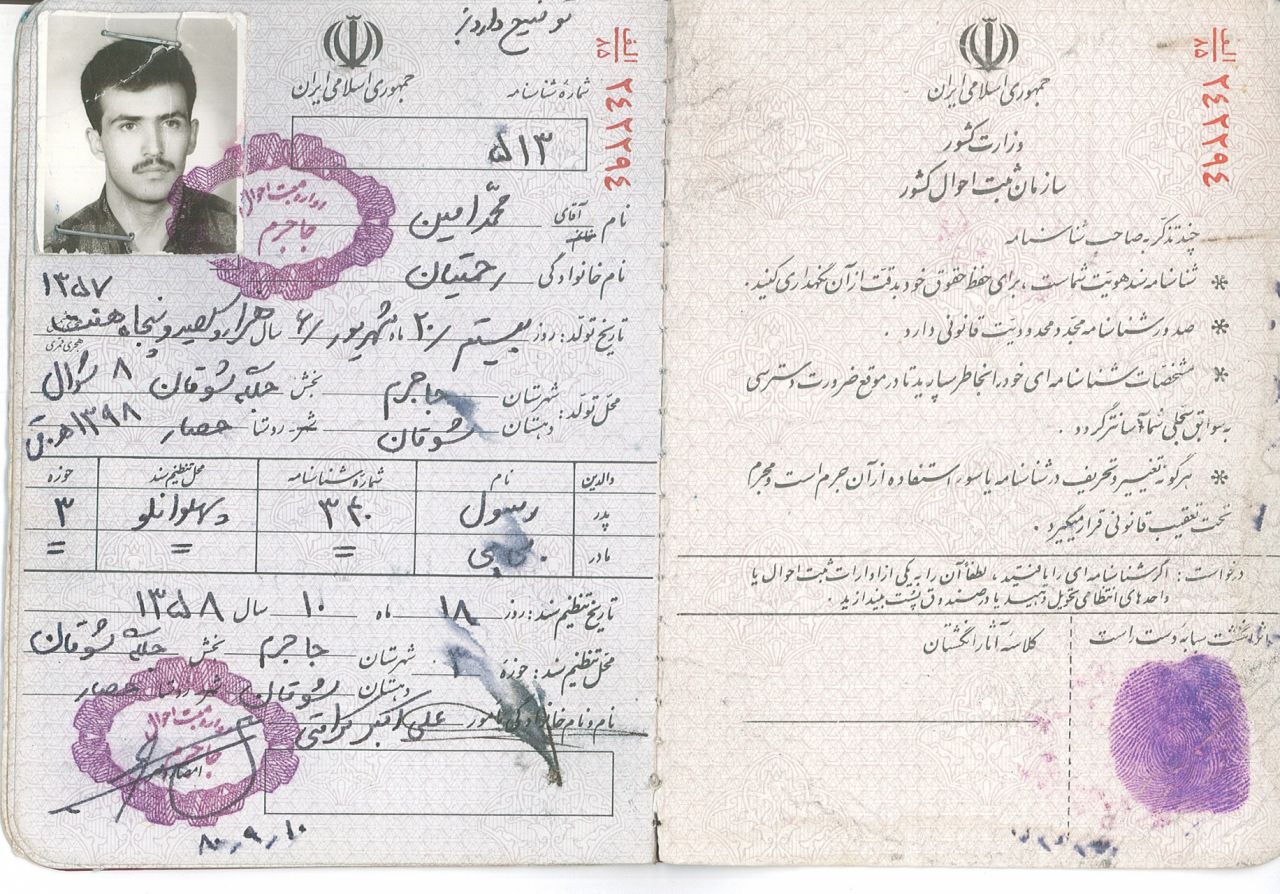 الف
۸۵
۲۴۲۲۹۴
جمهوری اسلامی ایران
وزارت کشور
سازمان ثبت احوال کشور
چند تذکر به صاحب شناسنامه
* شناسنامه سند هویت شماست ، برای حفظ حقوق خود بدقت از آن نگهداری کنید .
* صدور شناسنامه مجدد محدودیت قانونی دارد .
* مشخصات شناسنامه ای خود را بخاطر بسپارید تا در موقع ضرورت دسترسی
به سوابق سجلی شما آسانتر گردد .
* هرگونه تغییر و تحریف در شناسنامه یا سوء استفاده از آن جرم است و مجرم
تحت تعقیب قانونی قرار میگیرد .
درخواست : اگر شناسنامه ای را یافتید ، لطفاً آن را به یکی از ادارات ثبت احوال یا
واحدهای انتظامی تحویل دهید یا در صندوق پست بیندازید .
انگشت سبابه دست راست
کلاسه آثار انگشتان
توضیح دارد
الف
۸۵
۲۴۲۲۹۴
جمهوری اسلامی ایران
شمارهٔ شناسنامه
۵۱۳
نام آقای خانم محمّد امین
نام خانوادگی رحمتیان
۱۳۵۷
تاریخ تولد : روز بیستم /۲۰ ماه شهریور /۶ سال هزار و سیصد و پنجاه و هفت هجری شمسی هجری قمری
محل تولد : شهرستان جاجرم بخش جلگه شوقان ۸ شوال
دهستان شوقان شهر روستا حصار ۱۳۹۸ ه.ق
والدین نام شمارهٔ شناسنامه محل تنظیم سند حوزه
پدر رسول ۳۴۰ پهلوانلو ۳
مادر بی بی = = =
تاریخ تنظیم سند : روز ۱۸ ماه ۱۰ سال ۱۳۵۸
محل تنظیم سند : حوزه شهرستان جاجرم بخش جلگه شوقان
دهستان شوقان شهر روستا حصار
نام و نام خانوادگی مامور علی اکبر
اداره ثبت احوال
جاجرم
اداره ثبت احوال
جاجرم
۸۰،۹،۱۰